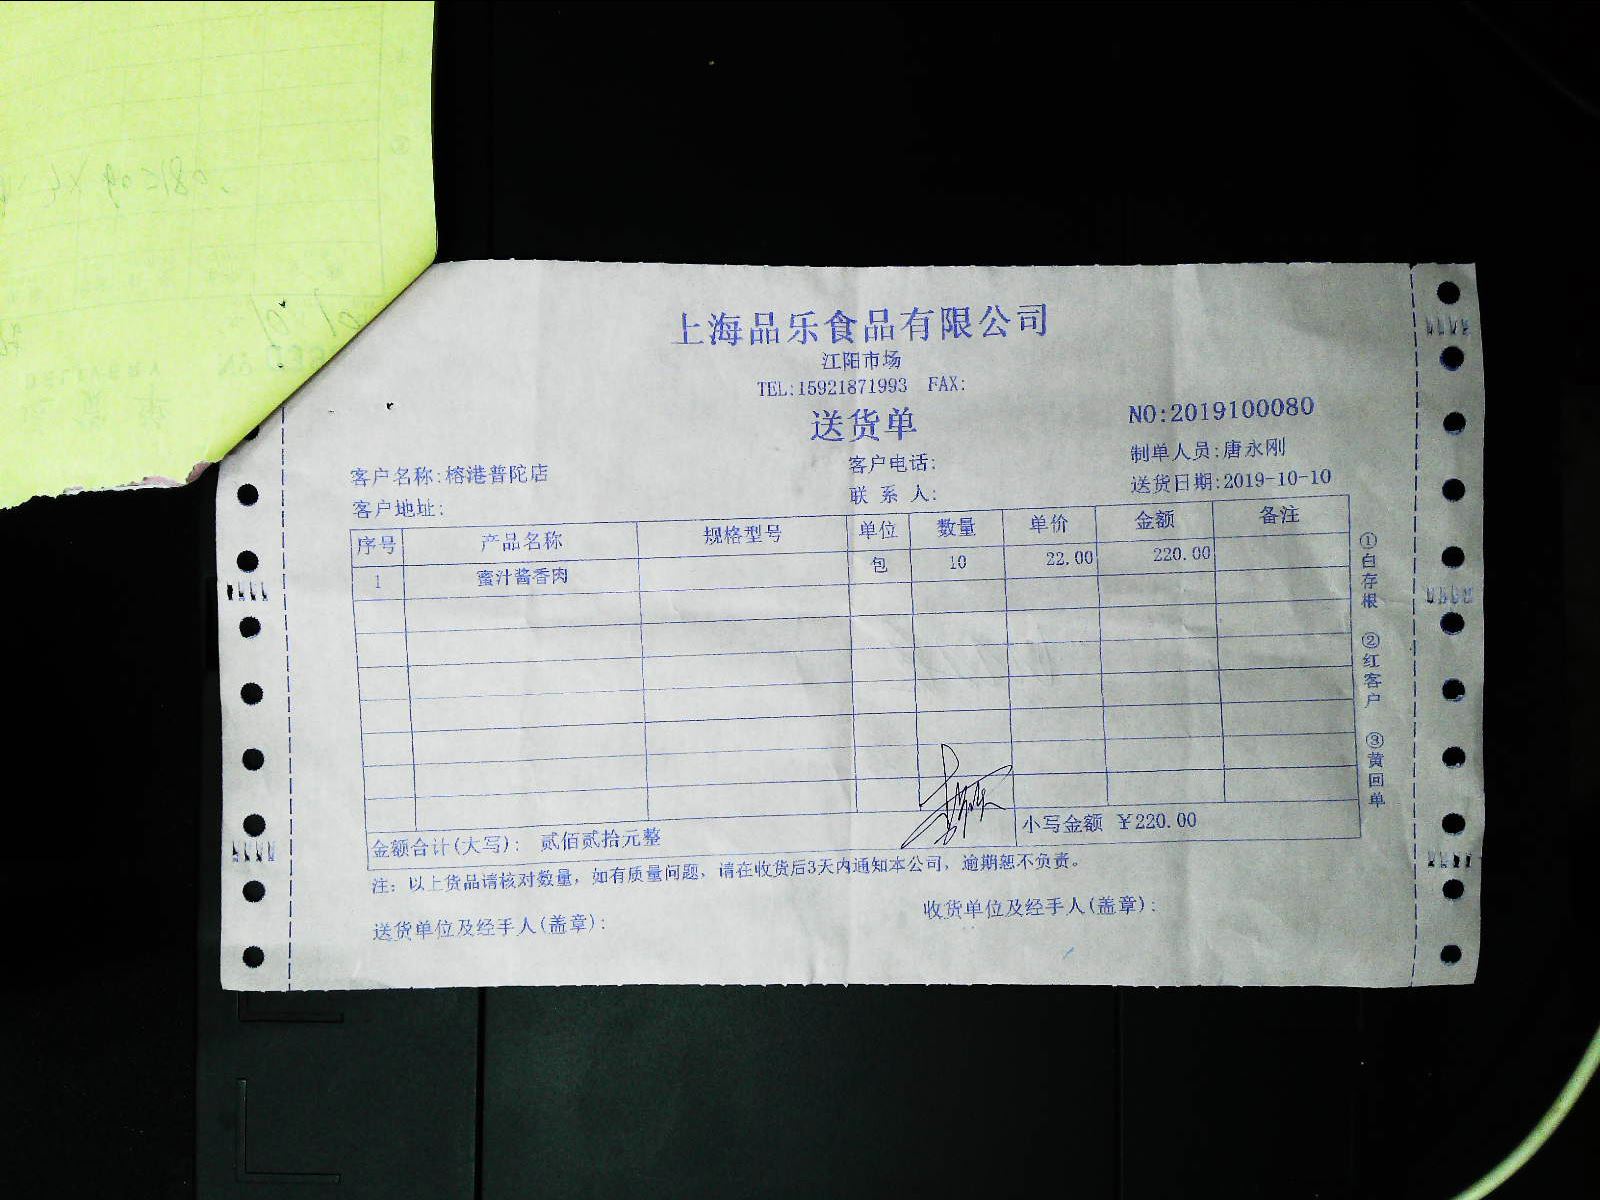 上海品乐食品有限公司
江阳市场
TEL:15921871993 FAX:
送货单
NO:2019100080
客户名称:榕港普陀店 客户电话: 制单人员:唐永刚
客户地址: 联系人: 送货日期:2019-10-10
序号 产品名称 规格型号 单位 数量 单价 金额 备注
1 蜜汁酱香肉 包 10 22.00 220.00
金额合计(大写): 贰佰贰拾元整 小写金额 ¥220.00
注：以上货品请核对数量，如有质量问题，请在收货后3天内通知本公司，逾期恕不负责。
送货单位及经手人(盖章): 收货单位及经手人(盖章):
①白存根 ②红客户 ③黄回单